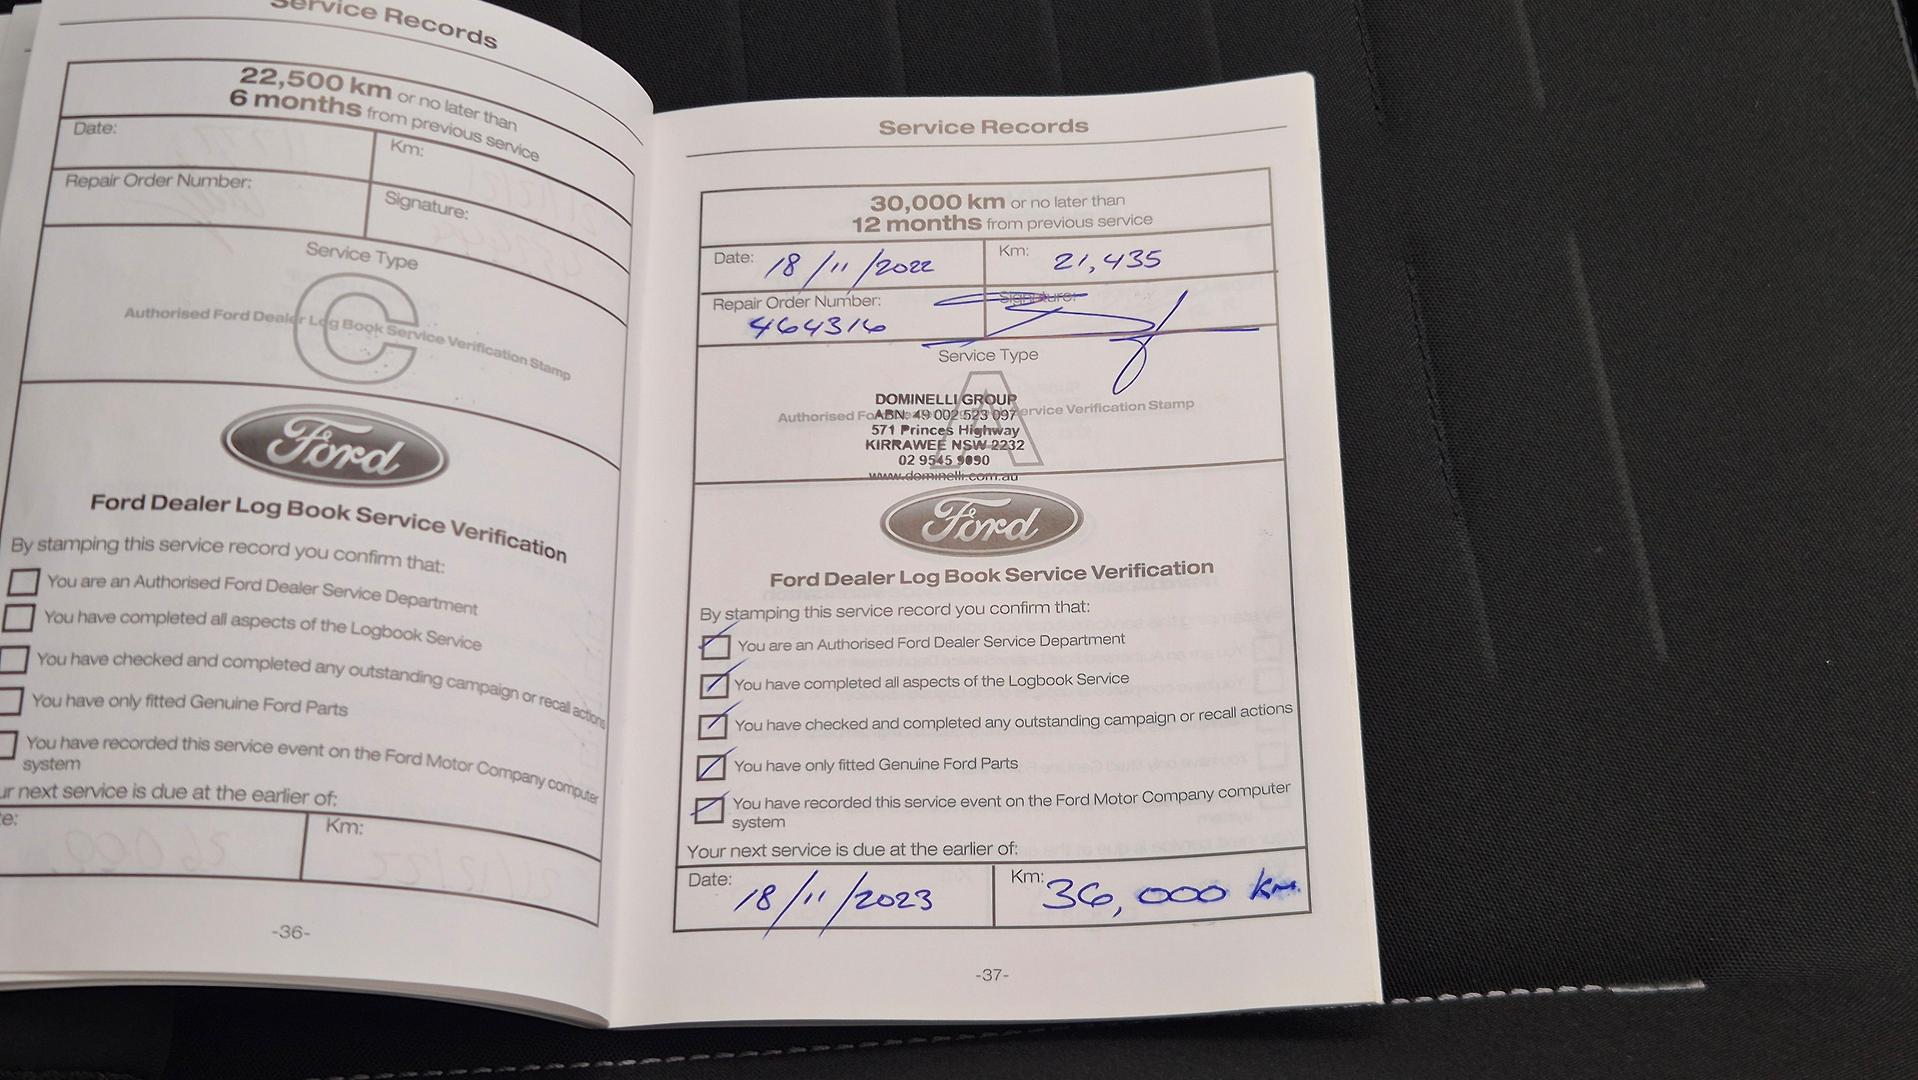 Service Records
22,500 km or no later than
6 months from previous service
Date:
Km:
Repair Order Number:
Signature:
Service Type
C
Authorised Ford Dealer Log Book Service Verification Stamp
Ford
Ford Dealer Log Book Service Verification
By stamping this service record you confirm that:
You are an Authorised Ford Dealer Service Department
You have completed all aspects of the Logbook Service
You have checked and completed any outstanding campaign or recall actions
You have only fitted Genuine Ford Parts
You have recorded this service event on the Ford Motor Company computer
system
ur next service is due at the earlier of:
te:
Km:
-36-
Service Records
30,000 km or no later than
12 months from previous service
Date: 18/11/2022
Km: 21,435
Repair Order Number:
464316
Signature:
Service Type
A
DOMINELLI GROUP
Authorised Fo ervice Verification Stamp
ABN: 49 002 523 097
571 Princes Highway
KIRRAWEE NSW 2232
02 9545 9090
www.dominelli.com.au
Ford
Ford Dealer Log Book Service Verification
By stamping this service record you confirm that:
You are an Authorised Ford Dealer Service Department
You have completed all aspects of the Logbook Service
You have checked and completed any outstanding campaign or recall actions
You have only fitted Genuine Ford Parts
You have recorded this service event on the Ford Motor Company computer
system
Your next service is due at the earlier of:
Date: 18/11/2023
Km: 36,000 km
-37-